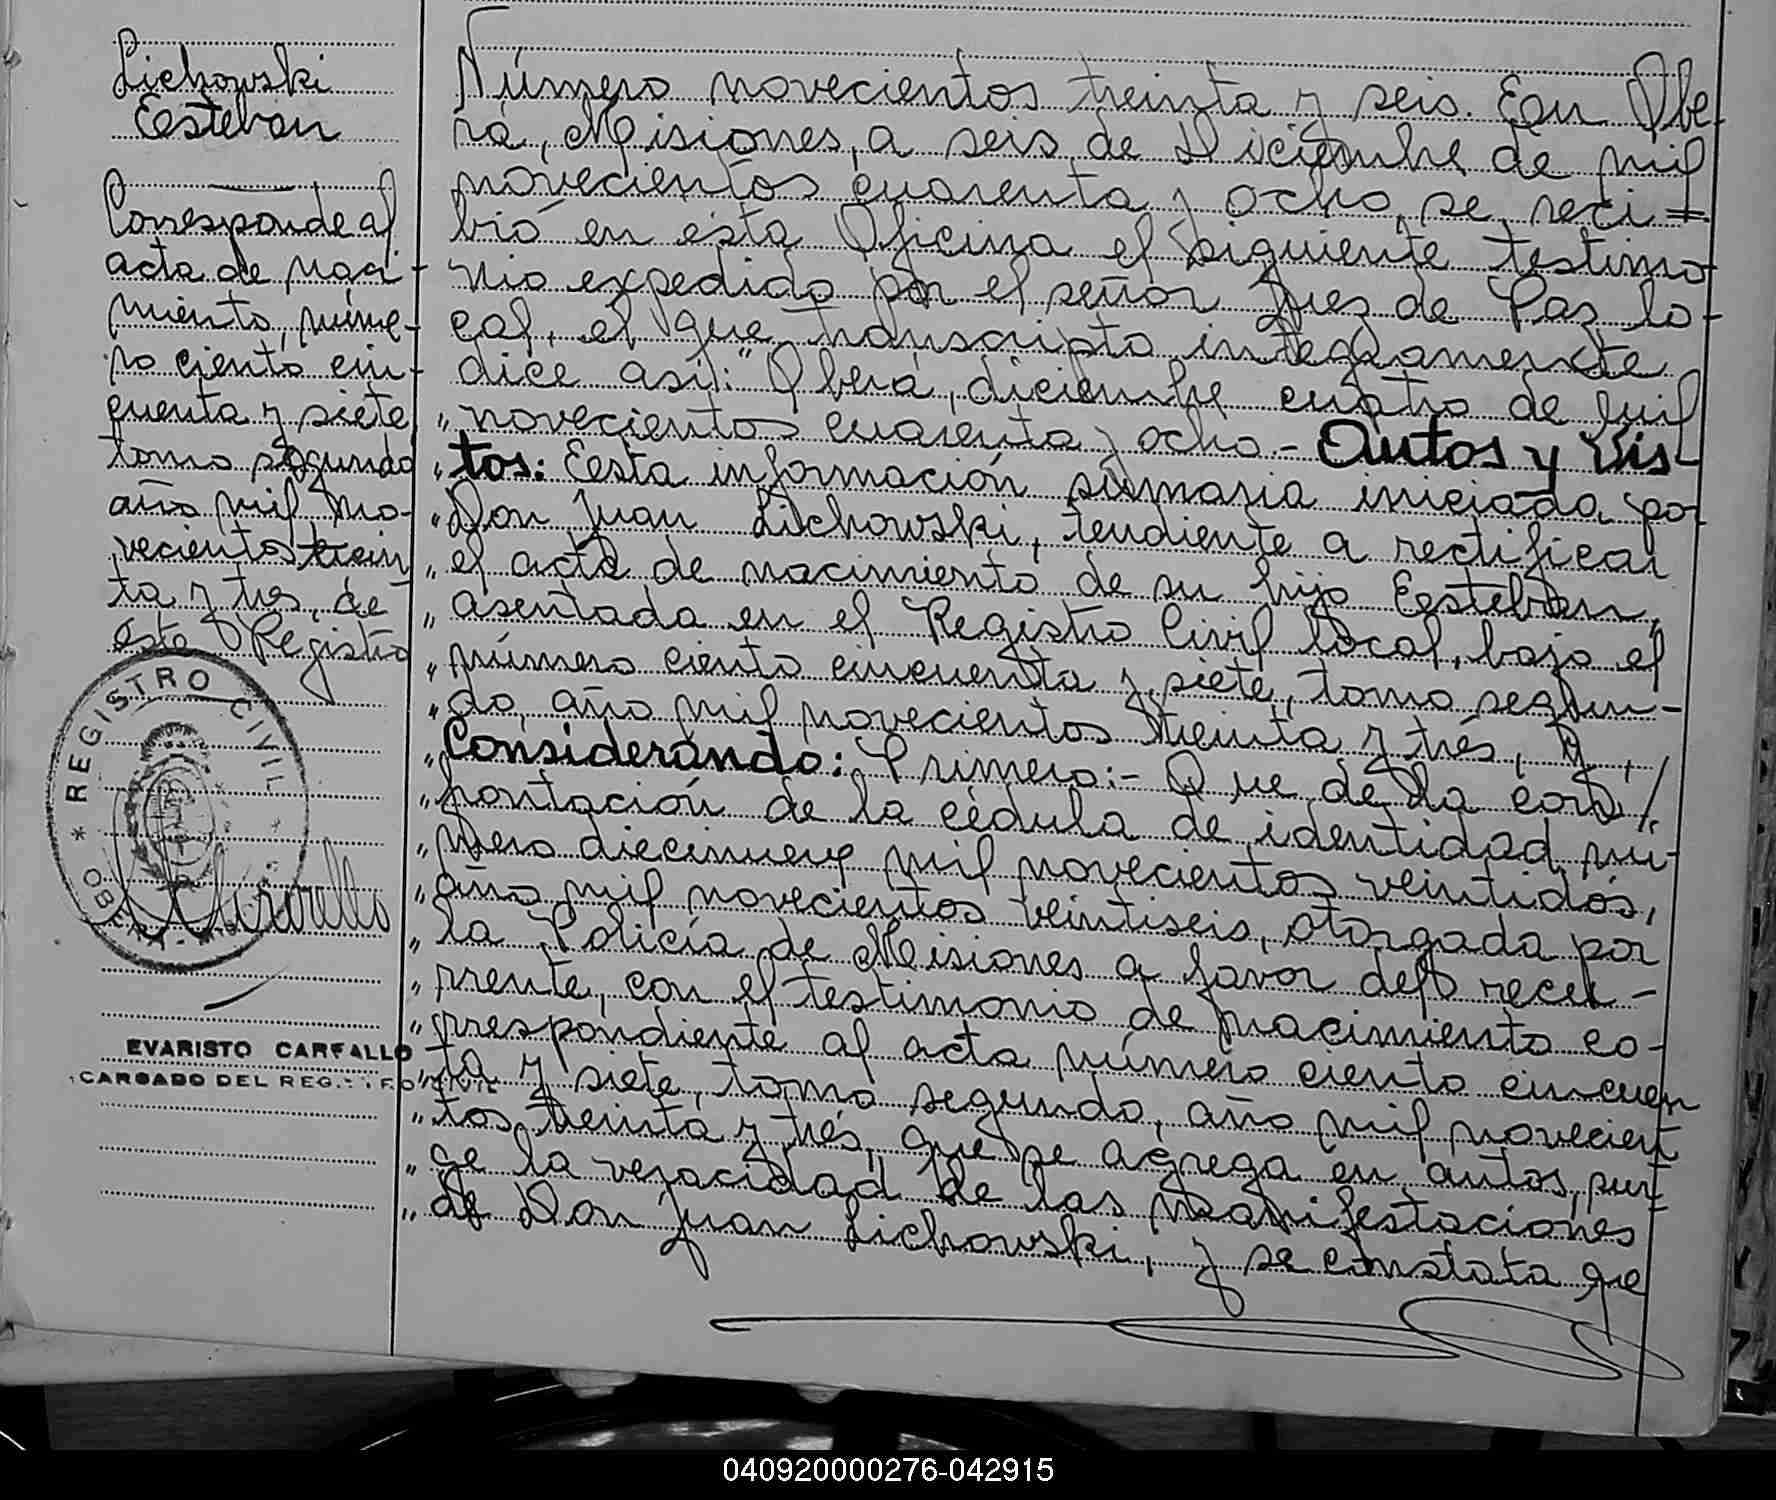 Lichowski
Eesteban
Corresponde al
acta de naci-
miento, núme-
ro ciento cin-
cuenta y siete
tomo segundo
año mil no-
vecientos trein
ta y tres, de
este Registro
REGISTRO CIVIL
OBERA
EVARISTO CARFALLO
CARGADO DEL REG.
Número novecientos treinta y seis. Een Obe-
rá, Misiones, a seis de Diciembre de mil
novecientos cuarenta y ocho, se reci=
bió en ésta Oficina el siguiente testimo-
nio expedido por el señor Juez de Paz lo-
cal, el que transcripto integramente
dice así: "Oberá, diciembre cuatro de mil
" novecientos cuarenta y ocho - Autos y Vis-
" tos: Eesta información sumaria iniciada por
" Don Juan Lichowski, tendiente a rectificar
" el acta de nacimiento de su hijo Eesteban,
" asentada en el Registro Civil local, bajo el
" número ciento cincuenta y siete, tomo segun-
" do, año mil novecientos treinta y tres, y,
" Considerando: Primero:- Que de la con/
" frontación de la cédula de identidad nú-
" mero diecinueve mil novecientos veintidós,
" año mil novecientos veintiseis, otorgada por
" la Policía de Misiones a favor del recu-
" rrente, con el testimonio de nacimiento co-
" rrespondiente al acta número ciento cincuen
" ta y siete, tomo segundo, año mil novecien
" tos treinta y trés, que se agrega en autos, sur-
" ge la veracidad de las manifestaciones
" de Don Juan Lichowski, y se constata que
040920000276-042915